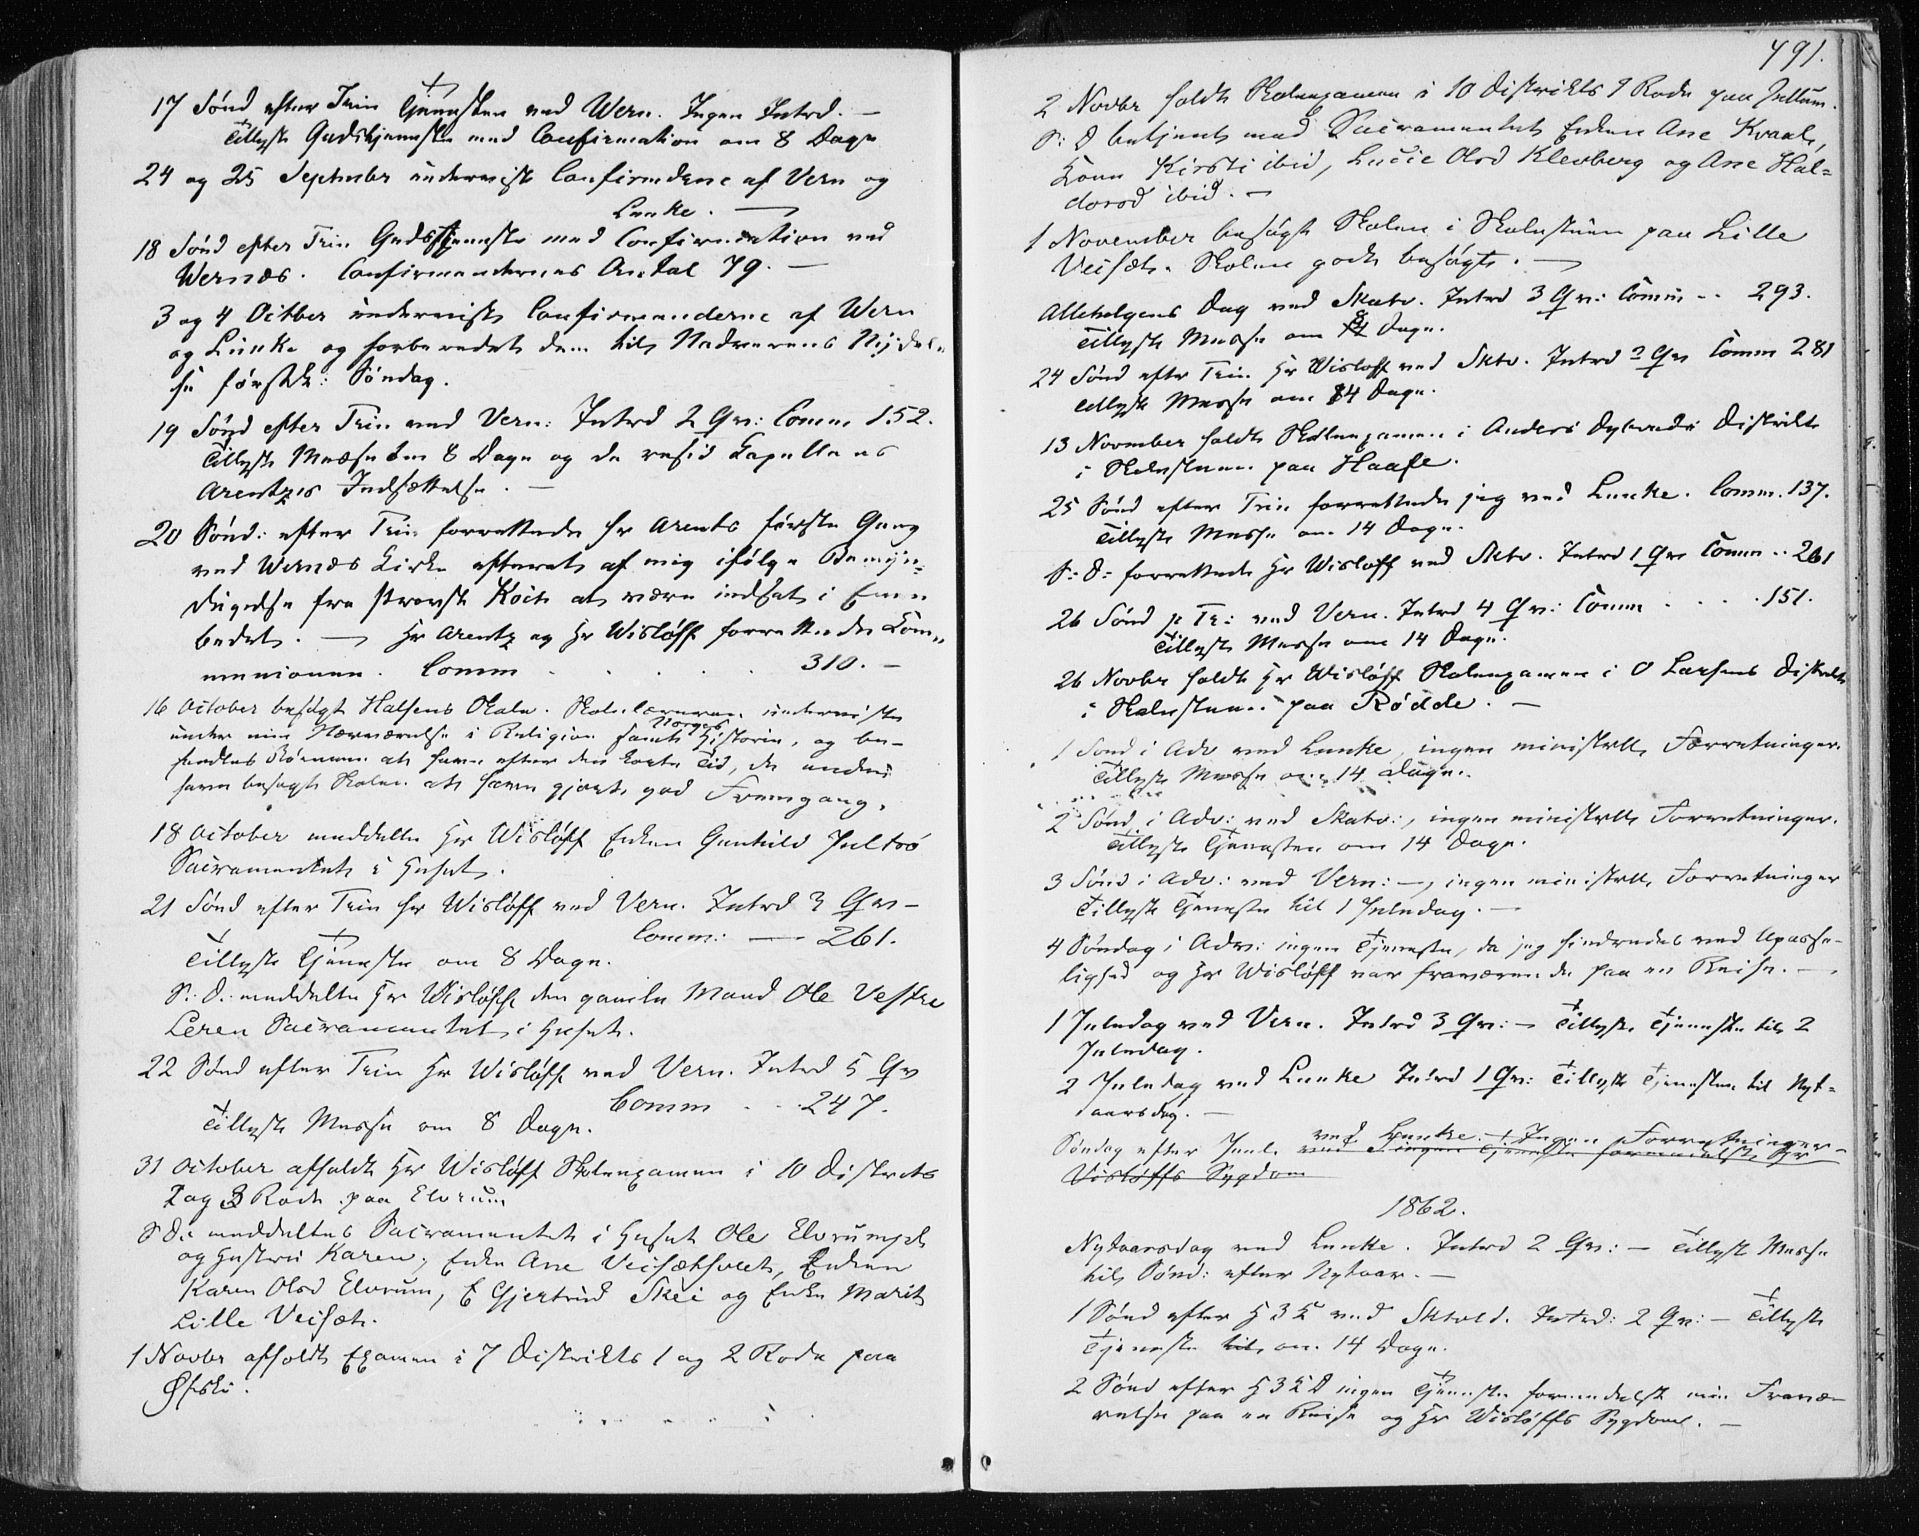 17 Sønd efter Trin Tjenesten ved Wern. Ingen Introd. —
Tillyst Gudstjeneste med Confirmation om 8 Dage
24 og 25 September underviist Confirmdene af Vern og
Lunke. —
18 Sønd efter Trin Gudstjeneste med Confirmation ved
Wernæs. Confirmandernes Antal 79. —
3 og 4 Octber underviist Confirmanderne af Wern
og Lunke og forberedet dem til Nadverens Nydel-
se førstk: Søndag.
19 Sønd efter Trin ved Vern: Introd 2 Qv: Comm. 152.
Tillyst Messe om 8 Dage og da resid Capellan
Arentzes Indsættelse. —
20 Sønd: efter Trin forrettede Hr Arentz første Gang
ved Wernæs Kirke efterat af mig ifølge Bemyn-
digelse fra Provst Koch at være indsat i Em-
bedet. — Hr Arentz og Hr Wisløff forrettede Com-
munionen. Comm . . . . 310. —
16 October besøgt Halsens Skole. Skolelæreren underviiste
under min Nærværelse i Religion samt Norges Historie, og be-
fandtes Børnene at have efter den korte Tid, de
have besøgt Skolen at have gjort god Fremgang.
18 October meddelte Hr Wisløff Enken Gunhild Jultrø
Sacramentet i Huset.
21 Sønd efter Trin Hr Wisløff ved Vern. Introd 3 Qv —
Comm: — 261.
Tillyst Tjeneste om 8 Dage.
S: D: meddelte Hr Wisløff den gamle Mand Ole Vestre
Leren Sacramentet i Huset.
22 Sønd efter Trin Hr Wisløff ved Vern. Introd 5 Qv
Comm . . . 247.
Tillyst Messe om 8 Dage.
31 October afholdt Hr Wisløff Skoleexamen i 10 Districts
2 og 3 Rode paa Elvrum
S D: meddeltes Sacramentet i Huset Ole Elvrumpl
og Hustru Karen, Enke Ane Veisætsvet, Enken
Karen Olsd Elvrum, E Gjertrud Skei og Enke Marit
Lille Veisæt.
1 Novbr afholdt Examen i 7 Distrikts 1 og 2 Rode paa
Øfsti.
791.
2 Novbr holdt Skoleexamen i 10 Distrikts 1 Rode paa Jullum.
S: D betjent med Sacramentet Enken Ane Kvaal,
Kone Kirsti ibid, Lucie Olsd Klevberg og Ane Hal-
dorsd ibid. —
1 November besøgt Skolen i Skolestuen paa Lille
Veisæt. Skolen godt besøgt. —
Allehelgens Dag ved Skatv. Introd 3 Qv: Comm .. 293.
Tillyst Messe om 8 Dage.
24 Sønd efter Trin. Hr Wisloff ved Sktv. Introd 2 Qv Comm 281
Tillyst Messe om 14 Dage.
13 November holdt Skoleexamen i Anders Dybvads Distrikt
i Skolestuen paa Haafe.
25 Sønd efter Trin forrettede jeg ved Lunke. Comm. 137.
Tillyst Messe om 14 Dage.
S: D: forrettede Hr Wisloff ved Sktv. Introd 1 Qv Comm .. 261
26 Sønd p Tr: ved Vern. Introd 4 Qv: Comm . . . . 151.
Tillyst Messe om 14 Dage.
26 Novbr holdt Hr Wisløff Skoleexamen i O Larsens Distrikt
i Skolestuen paa Rødde. —
1 Sond i Adv ved Lunke, ingen ministrelle Forretninger.
Tillyst Messe om 14 Dage.
2 Sønd i Adv: ved Skatv:, ingen ministrelle Forretninger.
Tillyst Tjenesten om 14 Dage.
3 Sønd i Adv: ved Vern: —, ingen ministrelle Forretninger
Tillyst Tjeneste til 1 Juledag. —
4 Søndag i Adv: ingen Tjeneste, da jeg hindredes ved Upasse-
lighed og Hr Wisløff var fraværende paa en Reise. —
1 Juledag ved Vern. Introd 3 Qv: — Tillyst Tjeneste til 2
Juledag.
2 Juledag ved Lunke Introd 1 Qv: Tillyst Tjenesten til Nyt-
aarsdag. —
Søndag efter Juul. ved Lunke. Ingen Forretninger —
ingen Tjeneste formedelst Hr
Visløffs Sygdom
1862.
Nytaarsdag ved Lunke. Introd 2 Qv: — Tillyst Messe
til Sønd: efter Nytaar. —
1 Sønd efter H 3 K ved Sktvld. Introd: 2 Qv: — Tillyst
Tjeneste til om 14 Dage.
2 Sønd efter H 3 K D ingen Tjeneste formedelst min Fravæ-
relse paa en Reise og Hr Wisløffs Sygdom. —